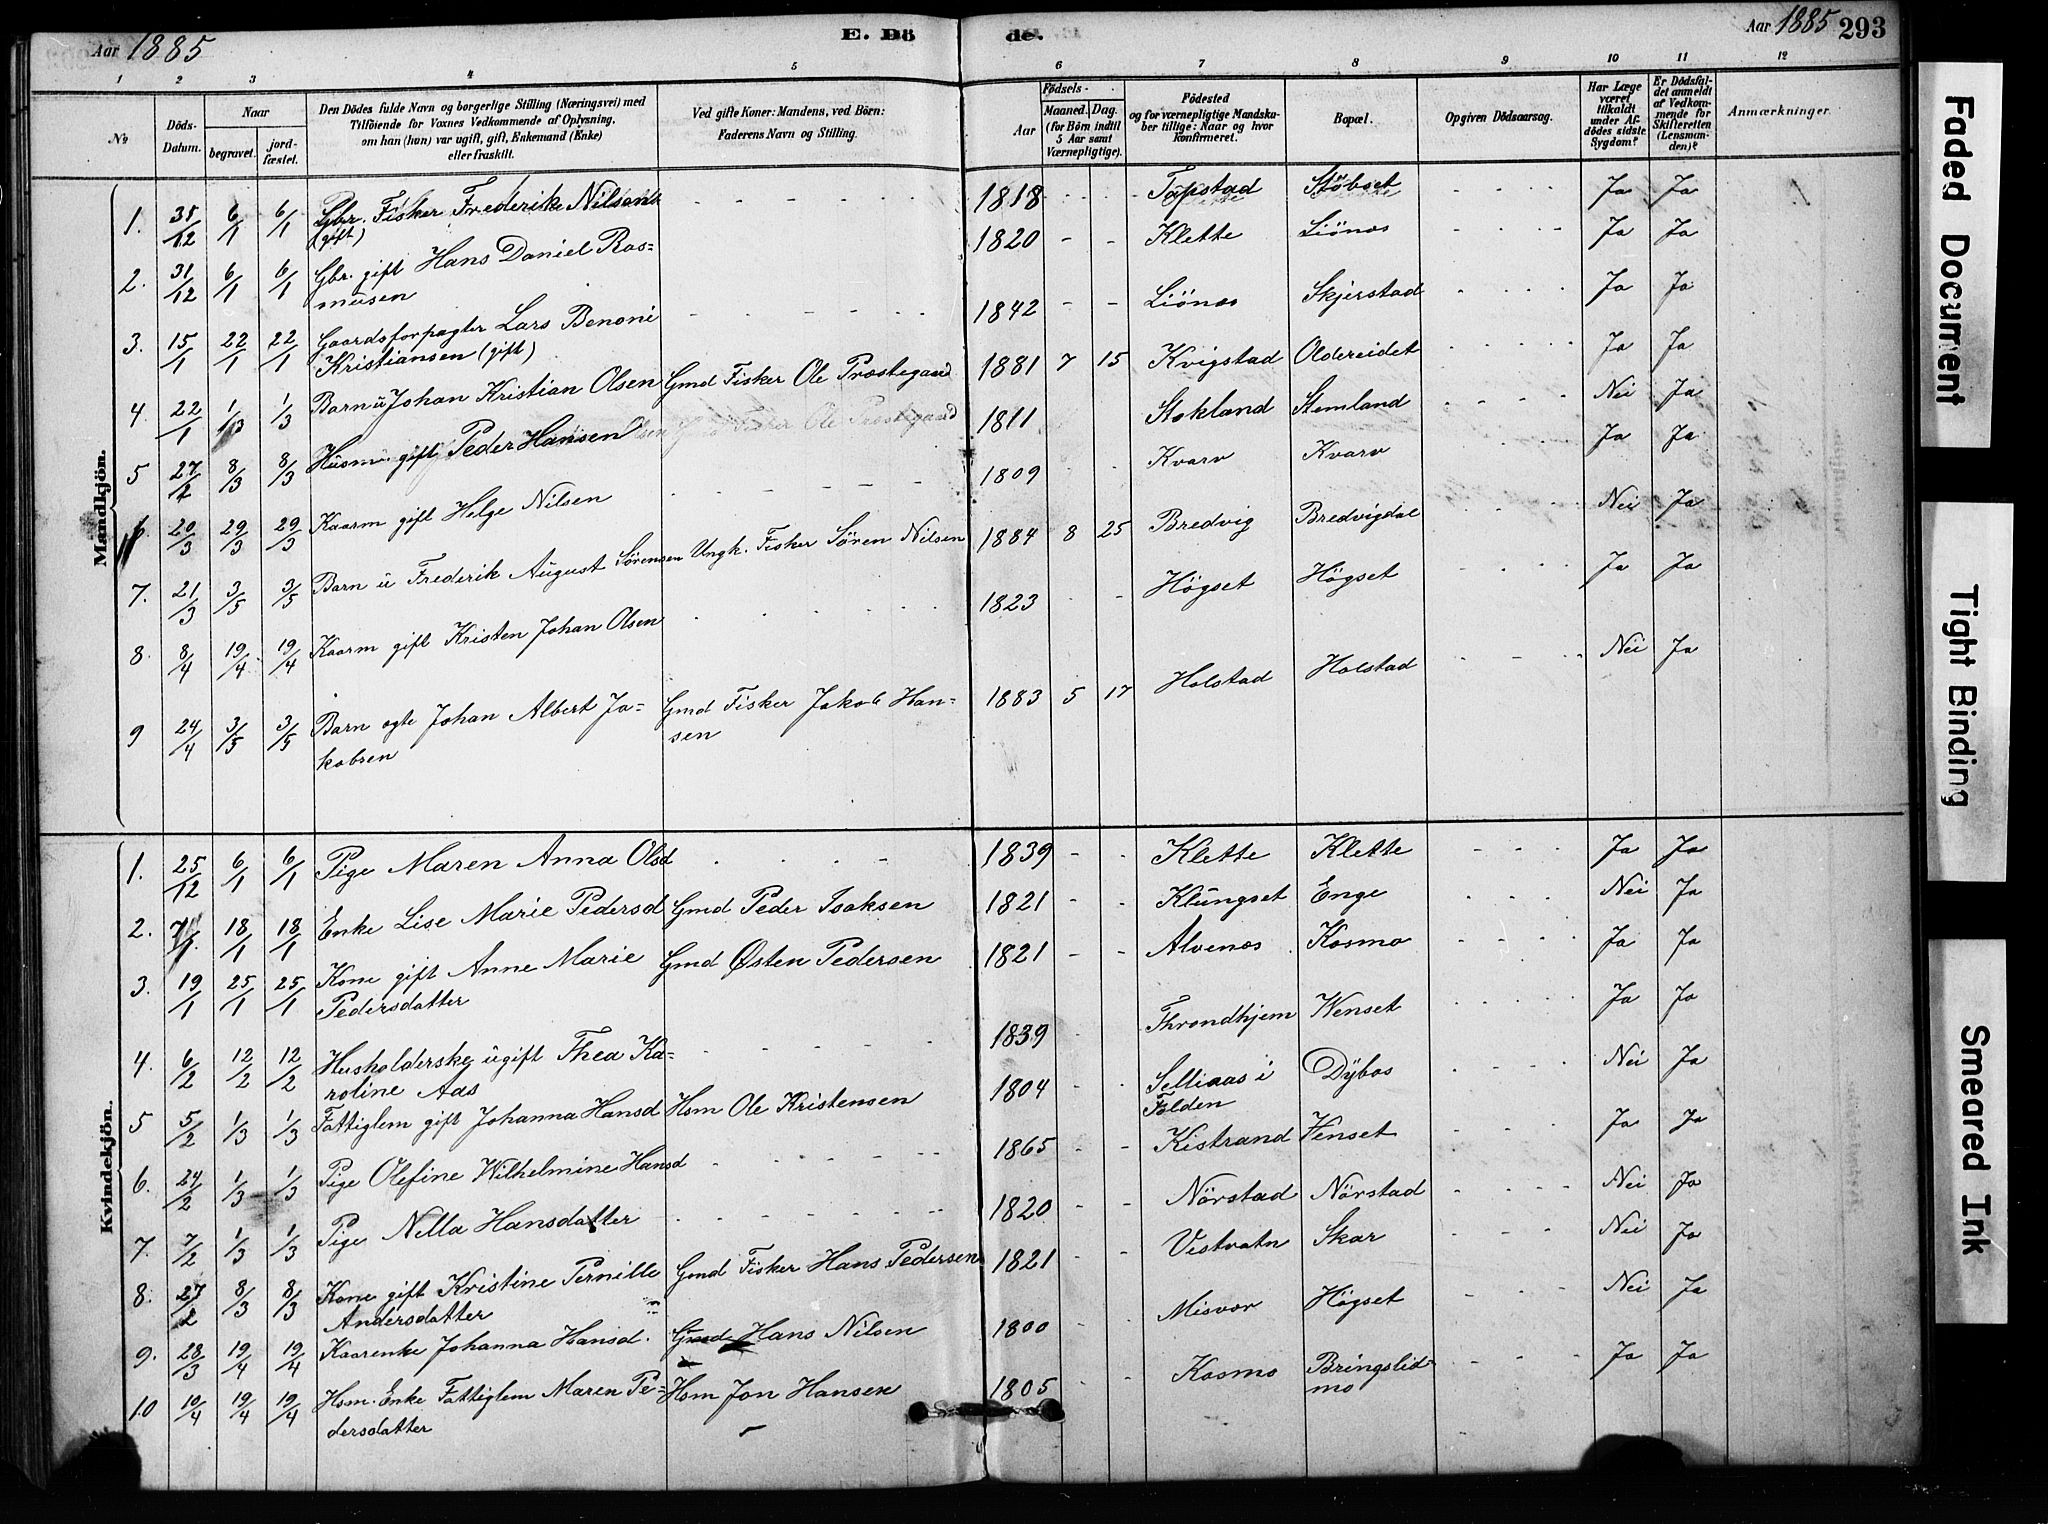 Aar 1885
E. Dö
de.
Aar 1885
293
1 2 3 4 5 6 7 8 9 10 11 12
№
Döds-
Datum.
Naar
begravet.
jord-
fæstet.
Den Dödes fulde Navn og borgerlige Stilling (Næringsvei) med
Tilföiende for Voxnes Vedkommende af Oplysning,
om han (hun) var ugift, gift, Enkemand (Enke)
eller fraskilt.
Ved gifte Koner: Mandens, ved Börn:
Faderens Navn og Stilling.
Födsels-
Aar
Maaned. Dag.
(for Börn indtil
5 Aar samt
Værnepligtige).
Födested
og for værnepligtige Mandska-
ber tillige: Naar og hvor
konfirmeret.
Bopæl.
Opgiven Dödsaarsag.
Har Læge
været
tilkaldt
under Af-
dödes sidste
Sygdom?
Er Dödsfal-
det anmeldt
af Vedkom-
mende for
Skifteretten
(Lensman-
den)?
Anmærkninger.
Mandkjön.
1. 6/1 6/1 Gbr. Fisker Frederik Nilsen 1818 Støbset Ja Ja
(gift)
2. 31/12 6/1 6/1 Gbr. gift Hans Daniel Ras- 1820 Klette Liönes Ja Ja
musen
3. 15/1 22/1 22/1 Gaardsforpagter Lars Benoni 1842 Liönes Skjerstad Ja Ja
Kristiansen (gift)
4. 22/1 1/3 1/3 Barn u Johan Kristian Olsen Gmd Fisker Ole Præstegaard 1881 7 15 Kvigstad Oldereidet Ja Ja
5 27/2 8/3 8/3 Husm. gift Peder Hansen 1811 Stokland Stemland Nei Ja
6 20/3 29/3 29/3 Kaarm gift Helge Nilsen 1809 Kvarv Kvarv Ja Ja
7. 21/3 3/5 3/5 Barn u Frederik August Sörensen Ungk. Fisker Sören Nilsen 1884 8 25 Bredvig Bredvigdal Nei Ja
8. 8/4 19/4 19/4 Kaarm gift Kristen Johan Olsen 1823 Högset Högset Ja Ja
9 24/4 3/5 3/5 Barn ægte Johan Albert Ja- Gmd Fisker Jakob Han- 1883 5 17 Holstad Holstad Nei Ja
kobsen sen
Kvindekjön.
1. 25/12 6/1 6/1 Pige Maren Anna Olsd 1839 Klette Klette Ja Ja
2. 7/1 18/1 18/1 Enke Lise Marie Pedersd Gmd Peder Isaksen 1821 Klungset Enge Nei Ja
3. 19/1 25/1 25/1 Kone gift Anne Marie Gmd Østen Pedersen 1821 Alvenes Kosmo Ja Ja
Pedersdatter
4. 6/2 12/2 12/2 Husholderske ugift Thea Ka- 1839 Throndhjem Wenset Ja Ja
roline Aas
5 5/2 1/3 1/3 Fattiglem gift Johanna Hansd Hsm Ole Kristensen 1804 Selliaas i Dybos Nei Ja
Folden
6. 24/2 1/3 1/3 Pige Olefine Wilhelmine Hansd 1865 Kistrand Venset Ja Ja
7. 7/2 1/3 1/3 Pige Nella Hansdatter 1820 Nörstad Nörstad Nei Ja
8. 27/2 8/3 8/3 Kone gift Kristine Pernille Gmd Fisker Hans Pedersen 1821 Vestvatn Skar Nei Ja
Andersdatter
9. 28/3 19/4 19/4 Kaarenke Johanna Hansd. Gmd Hans Nilsen 1800 Misvær Högset Nei Ja
10 10/4 19/4 19/4 Hsm. Enke Fattiglem Maren Pe- Hsm Jon Hansen 1805 Kosmo Bringslid- Ja Ja
dersdatter mo
Faded Document
Tight Binding
Smeared Ink